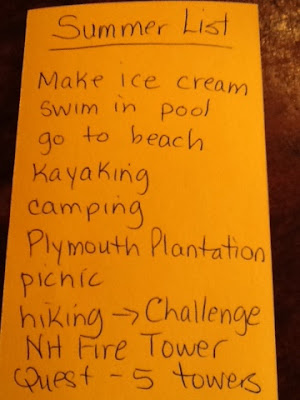 Summer List
Make ice cream
swim in pool
go to beach
Kayaking
camping
Plymouth Plantation
picnic
hiking → Challenge
NH Fire Tower
Quest - 5 towers